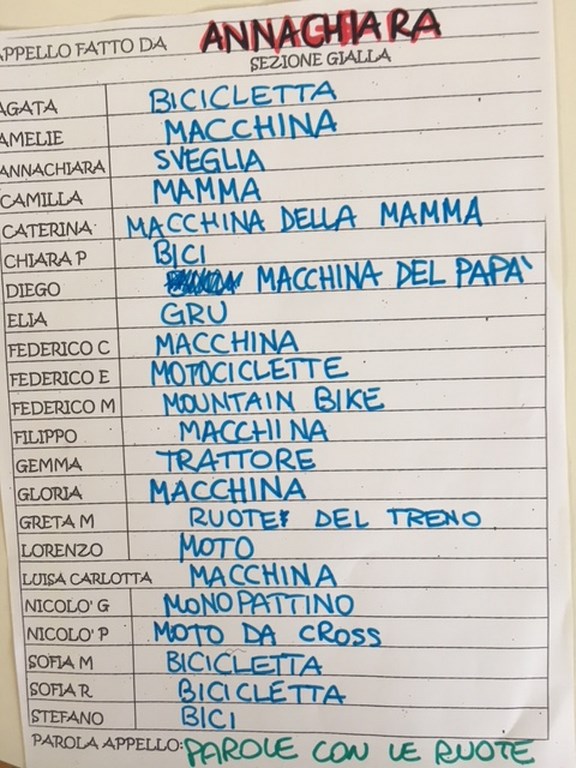 APPELLO FATTO DA ANNACHIARA
SEZIONE GIALLA
AGATA BICICLETTA
AMELIE MACCHINA
ANNACHIARA SVEGLIA
CAMILLA MAMMA
CATERINA MACCHINA DELLA MAMMA
CHIARA P BICI
DIEGO MACCHINA DEL PAPA'
ELIA GRU
FEDERICO C MACCHINA
FEDERICO E MOTOCICLETTE
FEDERICO M MOUNTAIN BIKE
FILIPPO MACCHINA
GEMMA TRATTORE
GLORIA MACCHINA
GRETA M RUOTE DEL TRENO
LORENZO MOTO
LUISA CARLOTTA MACCHINA
NICOLO' G MONOPATTINO
NICOLO' P MOTO DA CROSS
SOFIA M BICICLETTA
SOFIA R BICICLETTA
STEFANO BICI
PAROLA APPELLO: PAROLE CON LE RUOTE